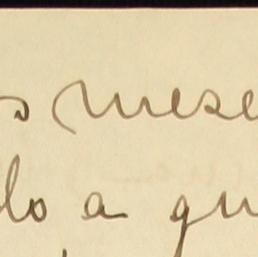 s mese
lo a gu